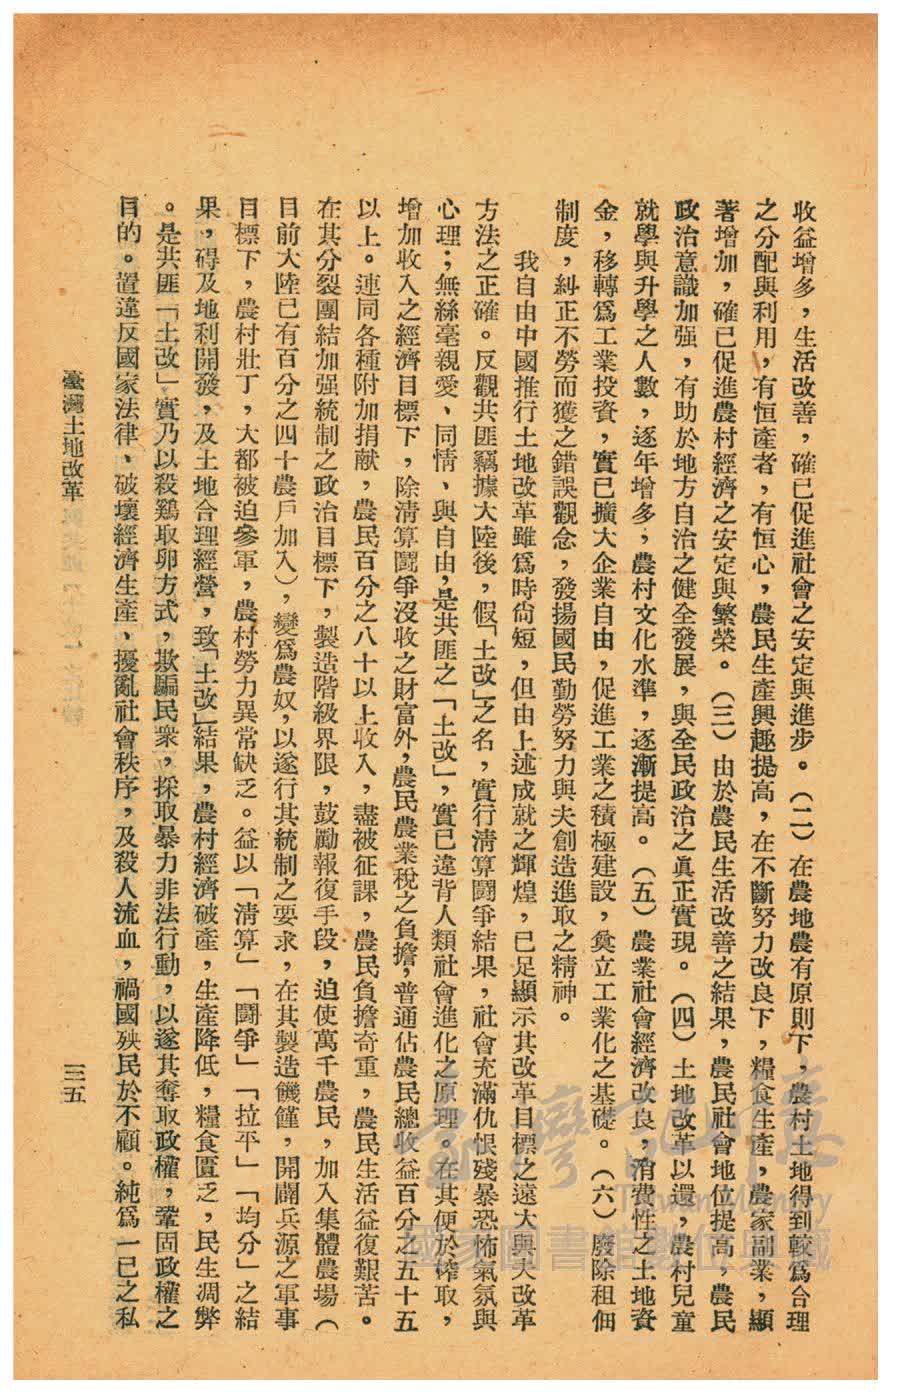 收益增多，生活改善，確已促進社會之安定與進步。（二）在農地農有原則下，農村土地得到較爲合理
之分配與利用，有恒產者，有恒心，農民生產興趣提高，在不斷努力改良下，糧食生產，農家副業，顯
著增加，確已促進農村經濟之安定與繁榮。（三）由於農民生活改善之結果，農民社會地位提高，農民
政治意識加强，有助於地方自治之健全發展，與全民政治之眞正實現。（四）土地改革以還，農村兒童
就學與升學之人數，逐年增多，農村文化水準，逐漸提高。（五）農業社會經濟改良，消費性之土地資
金，移轉爲工業投資，實已擴大企業自由，促進工業之積極建設，奠立工業化之基礎。（六）廢除租佃
制度，糾正不勞而獲之錯誤觀念，發揚國民勤勞努力與夫創造進取之精神。
我自由中國推行土地改革雖爲時尙短，但由上述成就之輝煌，已足顯示其改革目標之遠大與夫改革
方法之正確。反觀共匪竊據大陸後，假「土改」之名，實行淸算鬪爭結果，社會充滿仇恨殘暴恐怖氣氛與
心理；無絲毫親愛、同情、與自由，是共匪之「土改」，實已違背人類社會進化之原理。在其便於榨取，
增加收入之經濟目標下，除淸算鬪爭沒收之財富外，農民農業稅之負擔，普通佔農民總收益百分之五十五
以上。連同各種附加捐献，農民百分之八十以上收入，盡被征課，農民負擔奇重，農民生活益復艱苦。
在其分裂團結加强統制之政治目標下，製造階級界限，鼓勵報復手段，迫使萬千農民，加入集體農場（
目前大陸已有百分之四十農戶加入），變爲農奴，以遂行其統制之要求，在其製造饑饉，開闢兵源之軍事
目標下，農村壯丁，大都被迫參軍，農村勞力異常缺乏。益以「淸算」「鬪爭」「拉平」「均分」之結
果，碍及地利開發，及土地合理經營，致「土改」結果，農村經濟破產，生產降低，糧食匱乏，民生凋弊
。是共匪「土改」實乃以殺鷄取卵方式，欺騙民衆，採取暴力非法行動，以遂其奪取政權，鞏固政權之
目的。置違反國家法律、破壞經濟生產、擾亂社會秩序，及殺人流血，禍國殃民於不顧。純爲一已之私
臺灣土地改革
三五
臺灣記憶
Taiwan Memory
國家圖書館數位典藏